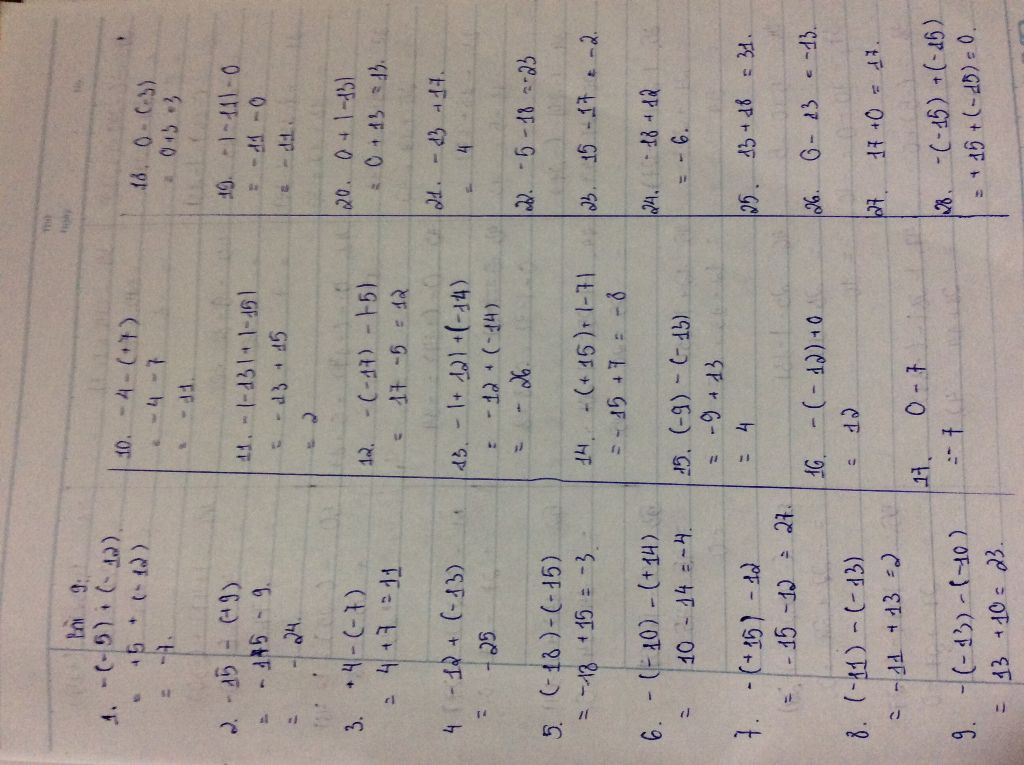 Thứ
Ngày
No.
Bài 9:
1. -(-5)+(-12).
= +5 + (-12)
= -7.
2. -15 - (+9)
= -15 - 9.
= -24.
3. +4-(-7)
= 4+7 = 11
4 (-12 + (-13)
= -25
5. (-18)-(-15)
= -18 + 15 = -3.
6. -(-10)-(+14)
= 10 -14 = -4.
7. -(+15) -12
= -15 -12 = 27.
8. (-11) - (-13)
= -11 + 13 = 2
9. -(-13)-(-10)
= 13 + 10 = 23.
10. -4-(+7)
= -4 -7
= -11.
11. -|-13|+|-15|
= -13 + 15
= 2
12. -(-17) -|-5|
= 17 -5 = 12
13. -|+12|+(-14)
= -12 + (-14)
= -26.
14. -(+15)+|-7|
= -15 + 7 = -8
15. (-9)-(-13)
= -9 + 13
= 4
16. -(-12)+0
= 12
17. 0-7
= -7
18. 0-(-3)
= 0+3=3
19. -|-11|-0
= -11 -0
= -11.
20. 0+|-13|
= 0 + 13 = 13.
21. -13 +17.
= 4
22. -5-18 = -23
23. 15 -17 = -2.
24. -18 + 12
= -6.
25. 13 + 18 = 31.
26. 0 - 13 = -13.
27. 17 +0 = 17.
28. -(-15) + (-15)
= +15 + (-15) = 0.